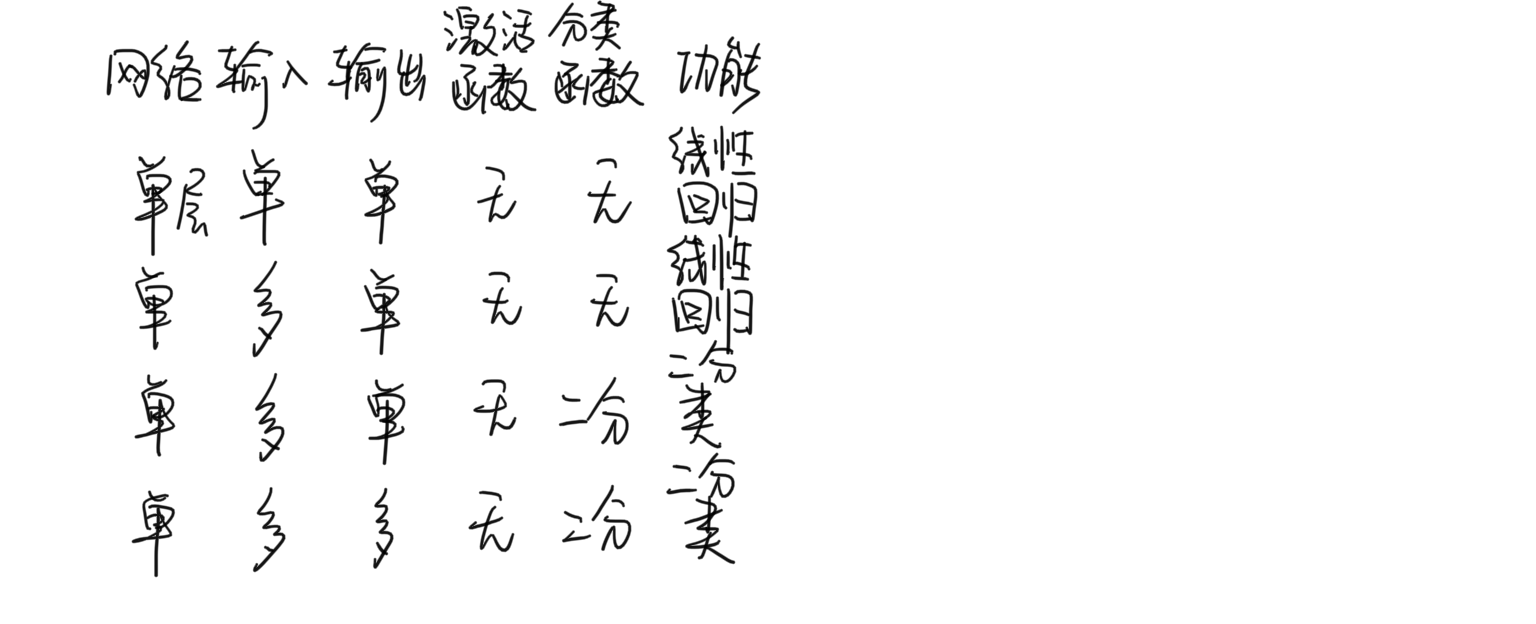 网络 输入 输出 激活函数 分类函数 功能
单层 单 单 无 无 线性回归
单 多 单 无 无 线性回归
单 多 单 无 二分 二分类
单 多 多 无 二分 二分类